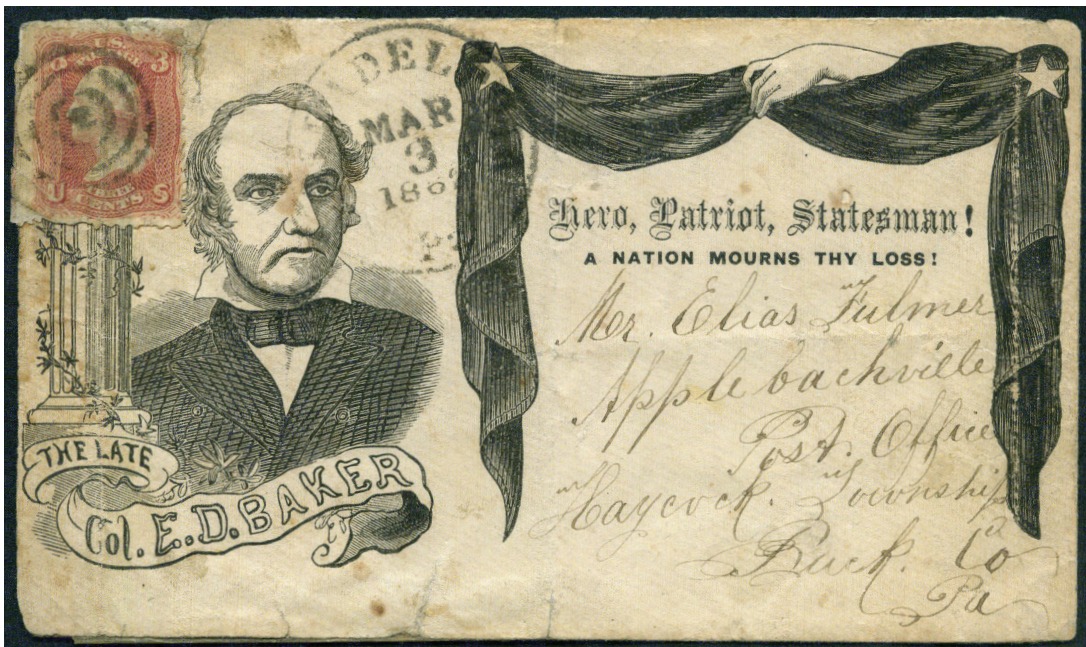 U.S. POSTAGE
3
U
S
THREE
CENTS
DEL
MAR
3
186
PA
Hero, Patriot, Statesman!
A NATION MOURNS THY LOSS!
Mr. Elias Fulmer
Applebachville
Post. Office
Haycock. Township
Buck. Co
Pa
THE LATE
Col. E.D. BAKER